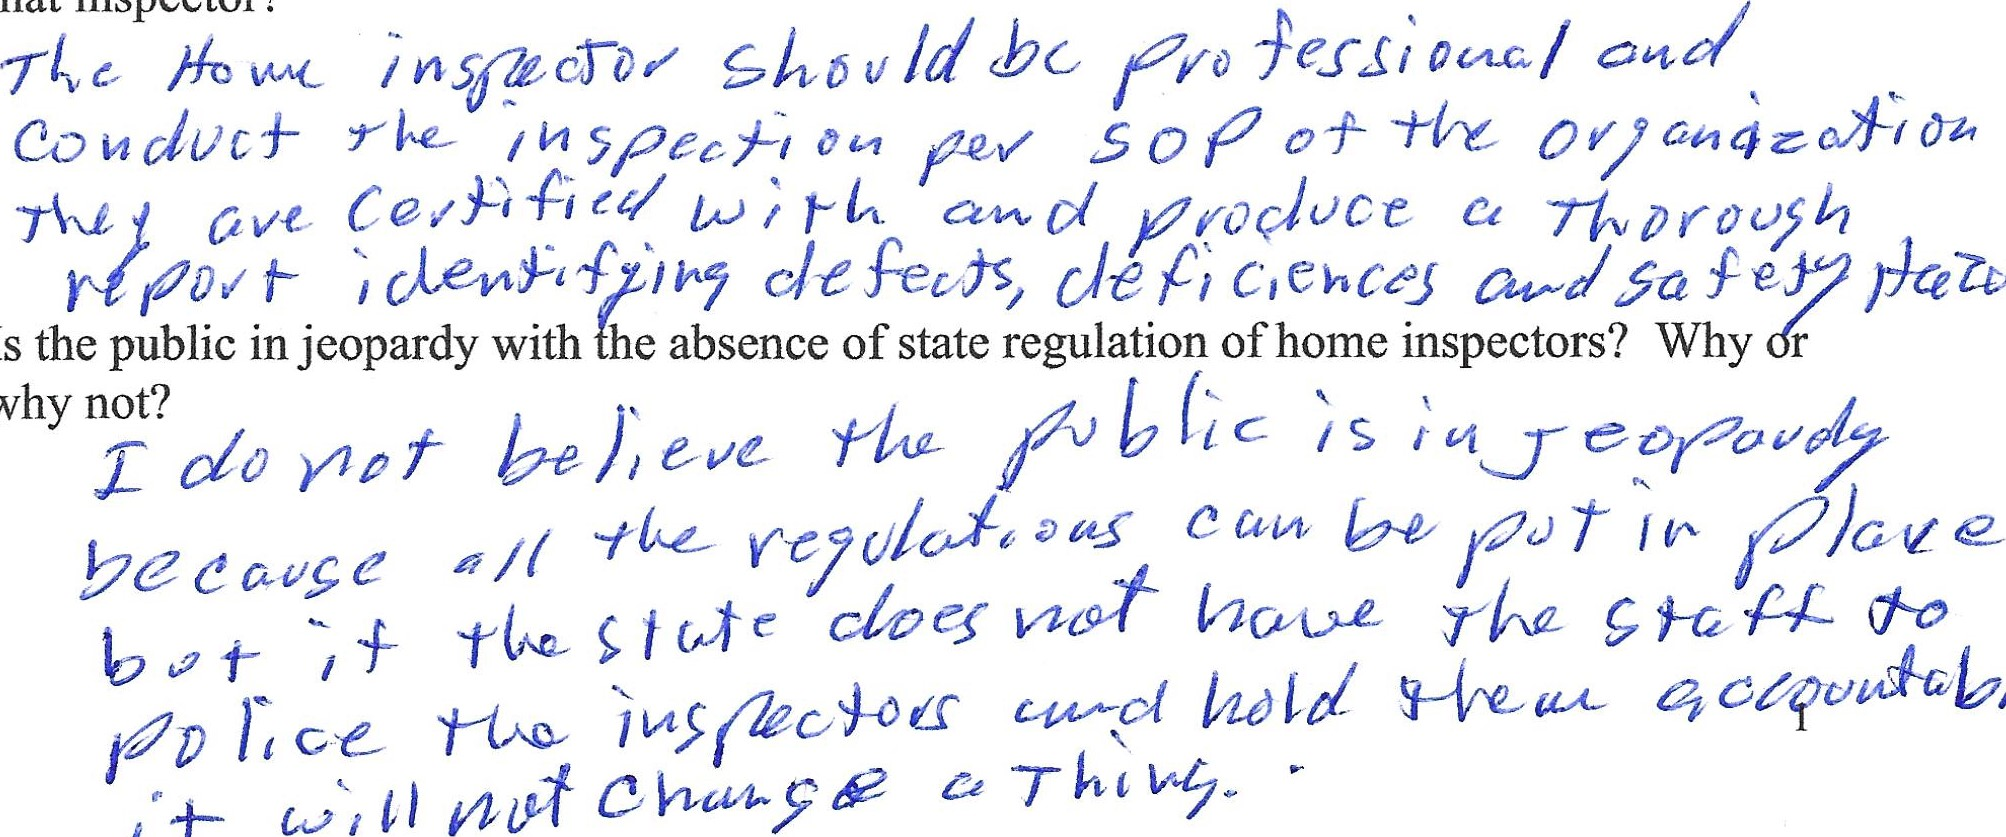 hat inspector?
The Home inspector should be professional and
conduct the inspection per SOP of the organization
they are certified with and produce a thorough
report identifying defects, deficiences and safety
s the public in jeopardy with the absence of state regulation of home inspectors? Why or
why not?
I do not believe the public is in jeopardy
because all the regulations can be put in place
but if the state does not have the staff to
police the inspectors and hold them accountab
it will not change a thing.
1